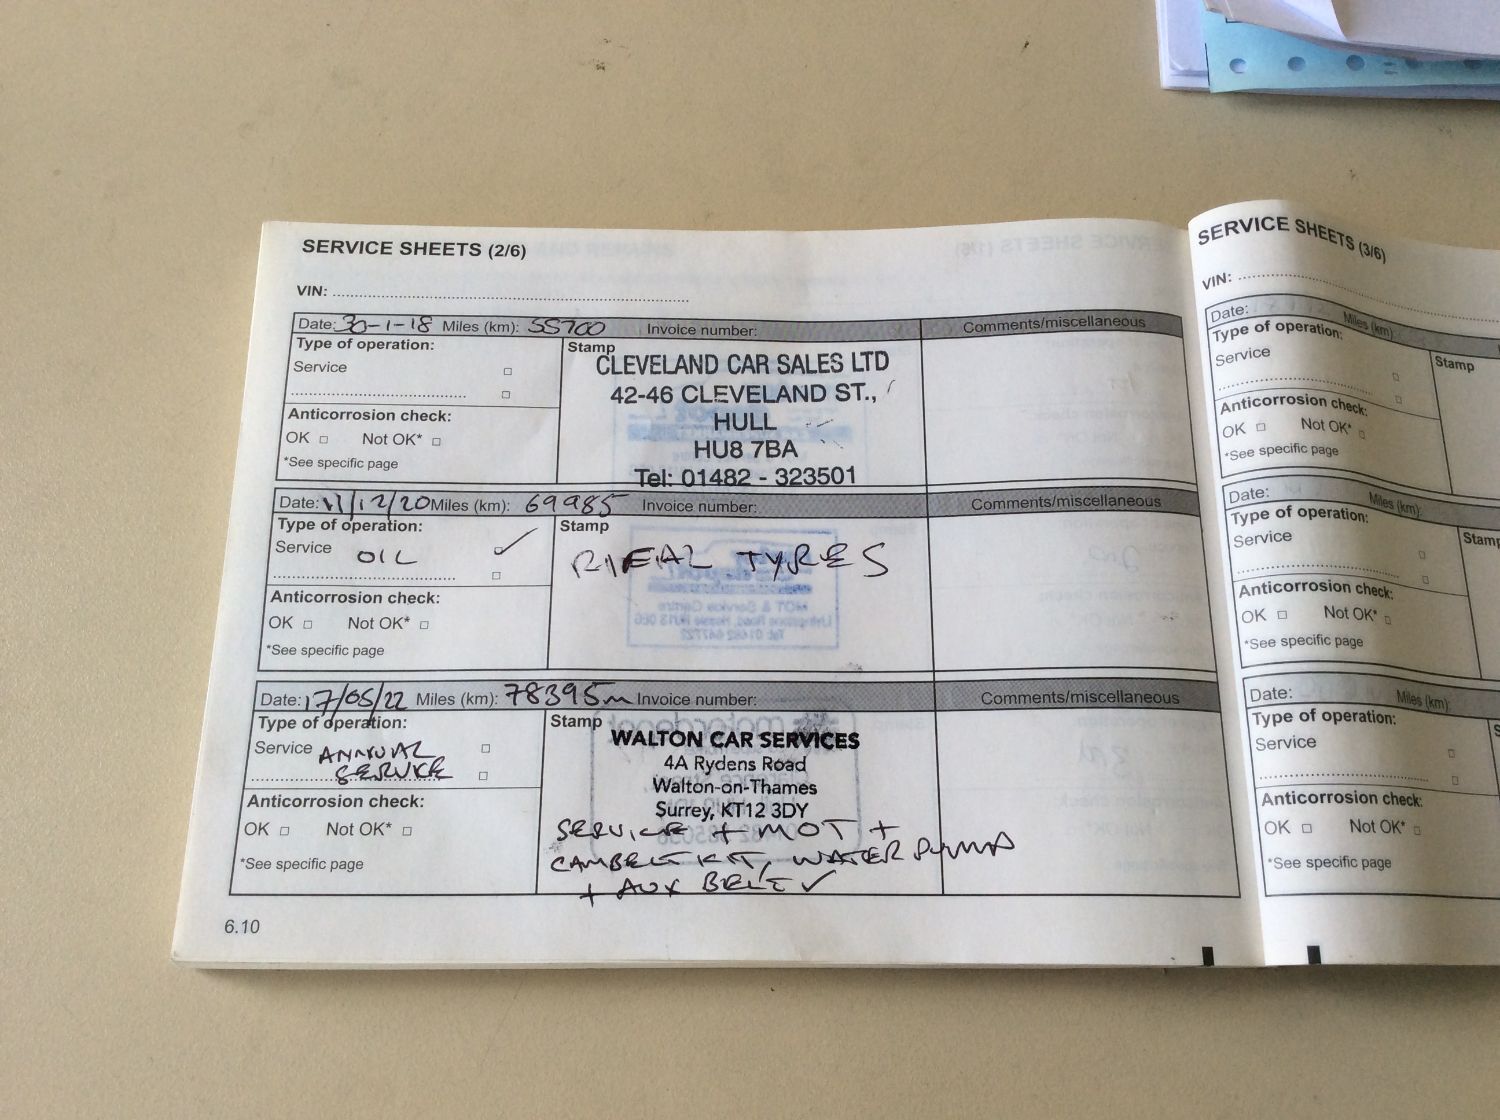 SERVICE SHEETS (2/6)
VIN:
Date: 30-1-18 Miles (km): 55700 Invoice number:
Comments/miscellaneous
Type of operation:
Service
Anticorrosion check:
OK Not OK*
*See specific page
Stamp
CLEVELAND CAR SALES LTD
42-46 CLEVELAND ST.,
HULL
HU8 7BA
Tel: 01482 - 323501
Date: 11/12/20 Miles (km): 69985 Invoice number:
Comments/miscellaneous
Type of operation:
Service OIL ✓
Anticorrosion check:
OK Not OK*
*See specific page
Stamp
TYRES
Date: 17/05/22 Miles (km): 78395m Invoice number:
Comments/miscellaneous
Type of operation:
Service ANNUAL
SERVICE
Anticorrosion check:
OK Not OK*
*See specific page
Stamp
WALTON CAR SERVICES
4A Rydens Road
Walton-on-Thames
Surrey, KT12 3DY
SERVICE + MOT +
CAMBELT KIT, WATER PUMP
+ AUX BELT ✓
6.10
SERVICE SHEETS (3/6)
VIN:
Date: Miles (km):
Type of operation:
Service
Stamp
Anticorrosion check:
OK Not OK*
*See specific page
Date: Miles (km):
Type of operation:
Service
Stamp
Anticorrosion check:
OK Not OK*
*See specific page
Date: Miles (km):
Type of operation:
Service
Anticorrosion check:
OK Not OK*
*See specific page